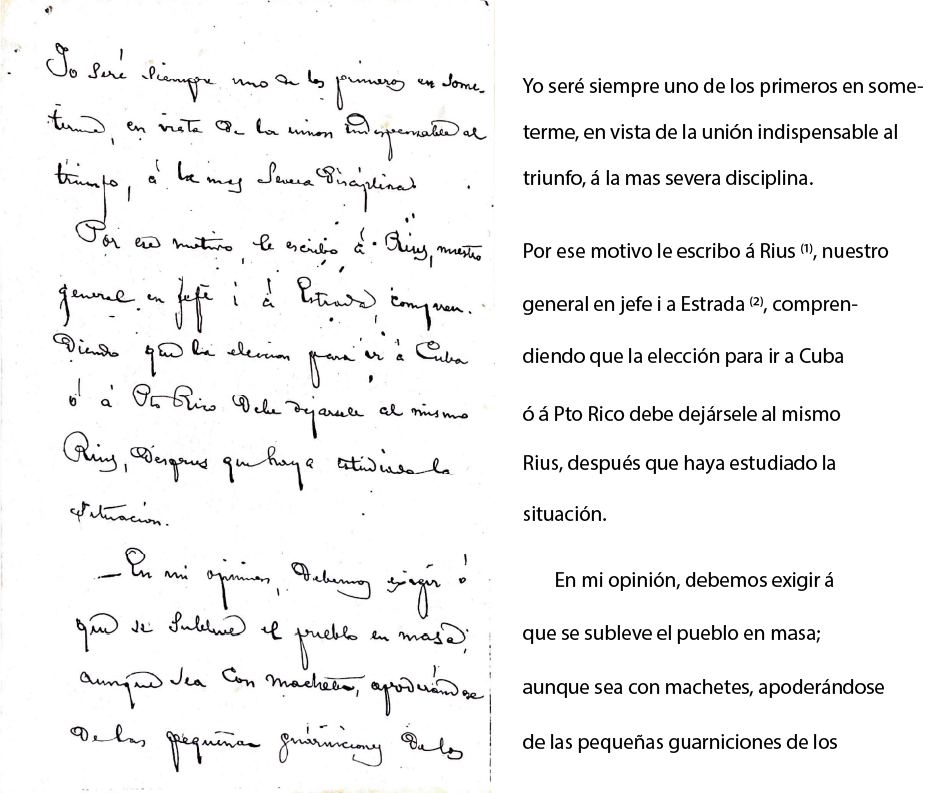 Yo seré siempre uno de los primeros en some-
terme, en vista de la union indispensable al
triunfo, á la mas severa disciplina
Por ese motivo, le escribo á Rius, nuestro
general en jefe i á Estrada, compren-
diendo que la eleccion para ir á Cuba
ó á Pto Rico debe dejarsele al mismo
Rius, despues que haya estudiado la
situacion.
— En mi opinion, debemos exigir á
que se subleve el pueblo en masa;
aunque sea con machetes, apoderándose
de las pequeñas guarniciones de los
Yo seré siempre uno de los primeros en some-
terme, en vista de la unión indispensable al
triunfo, á la mas severa disciplina.
Por ese motivo le escribo á Rius (1), nuestro
general en jefe i a Estrada (2), compren-
diendo que la elección para ir a Cuba
ó á Pto Rico debe dejársele al mismo
Rius, después que haya estudiado la
situación.
En mi opinión, debemos exigir á
que se subleve el pueblo en masa;
aunque sea con machetes, apoderándose
de las pequeñas guarniciones de los